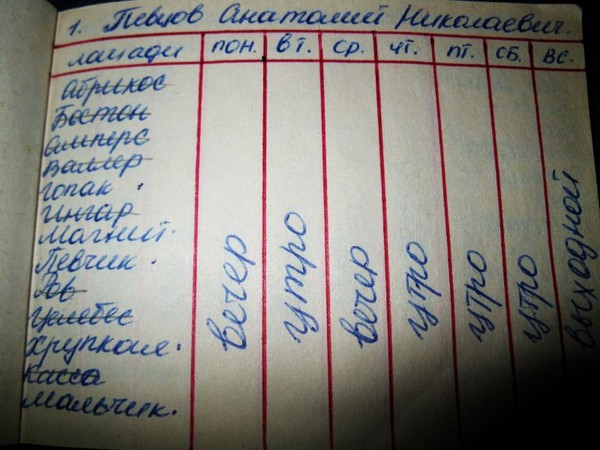 1. Певцов Анатолий Николаевич.
лошади пон. вт. ср. чт. пт. сб. вс.
Абрикос
Бостон
Ампер
Валлер
Гопак
Ингар
Магнит
Певчик
Ров
Хрупкая
Касса
Мальчик
вечер утро вечер утро утро утро выходной